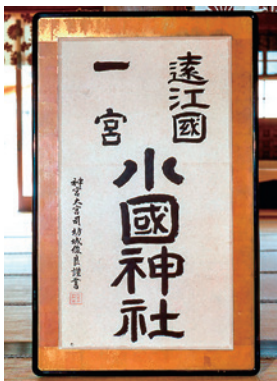 遠江國
一宮
小國神社
神宮大宮司坊城俊良謹書